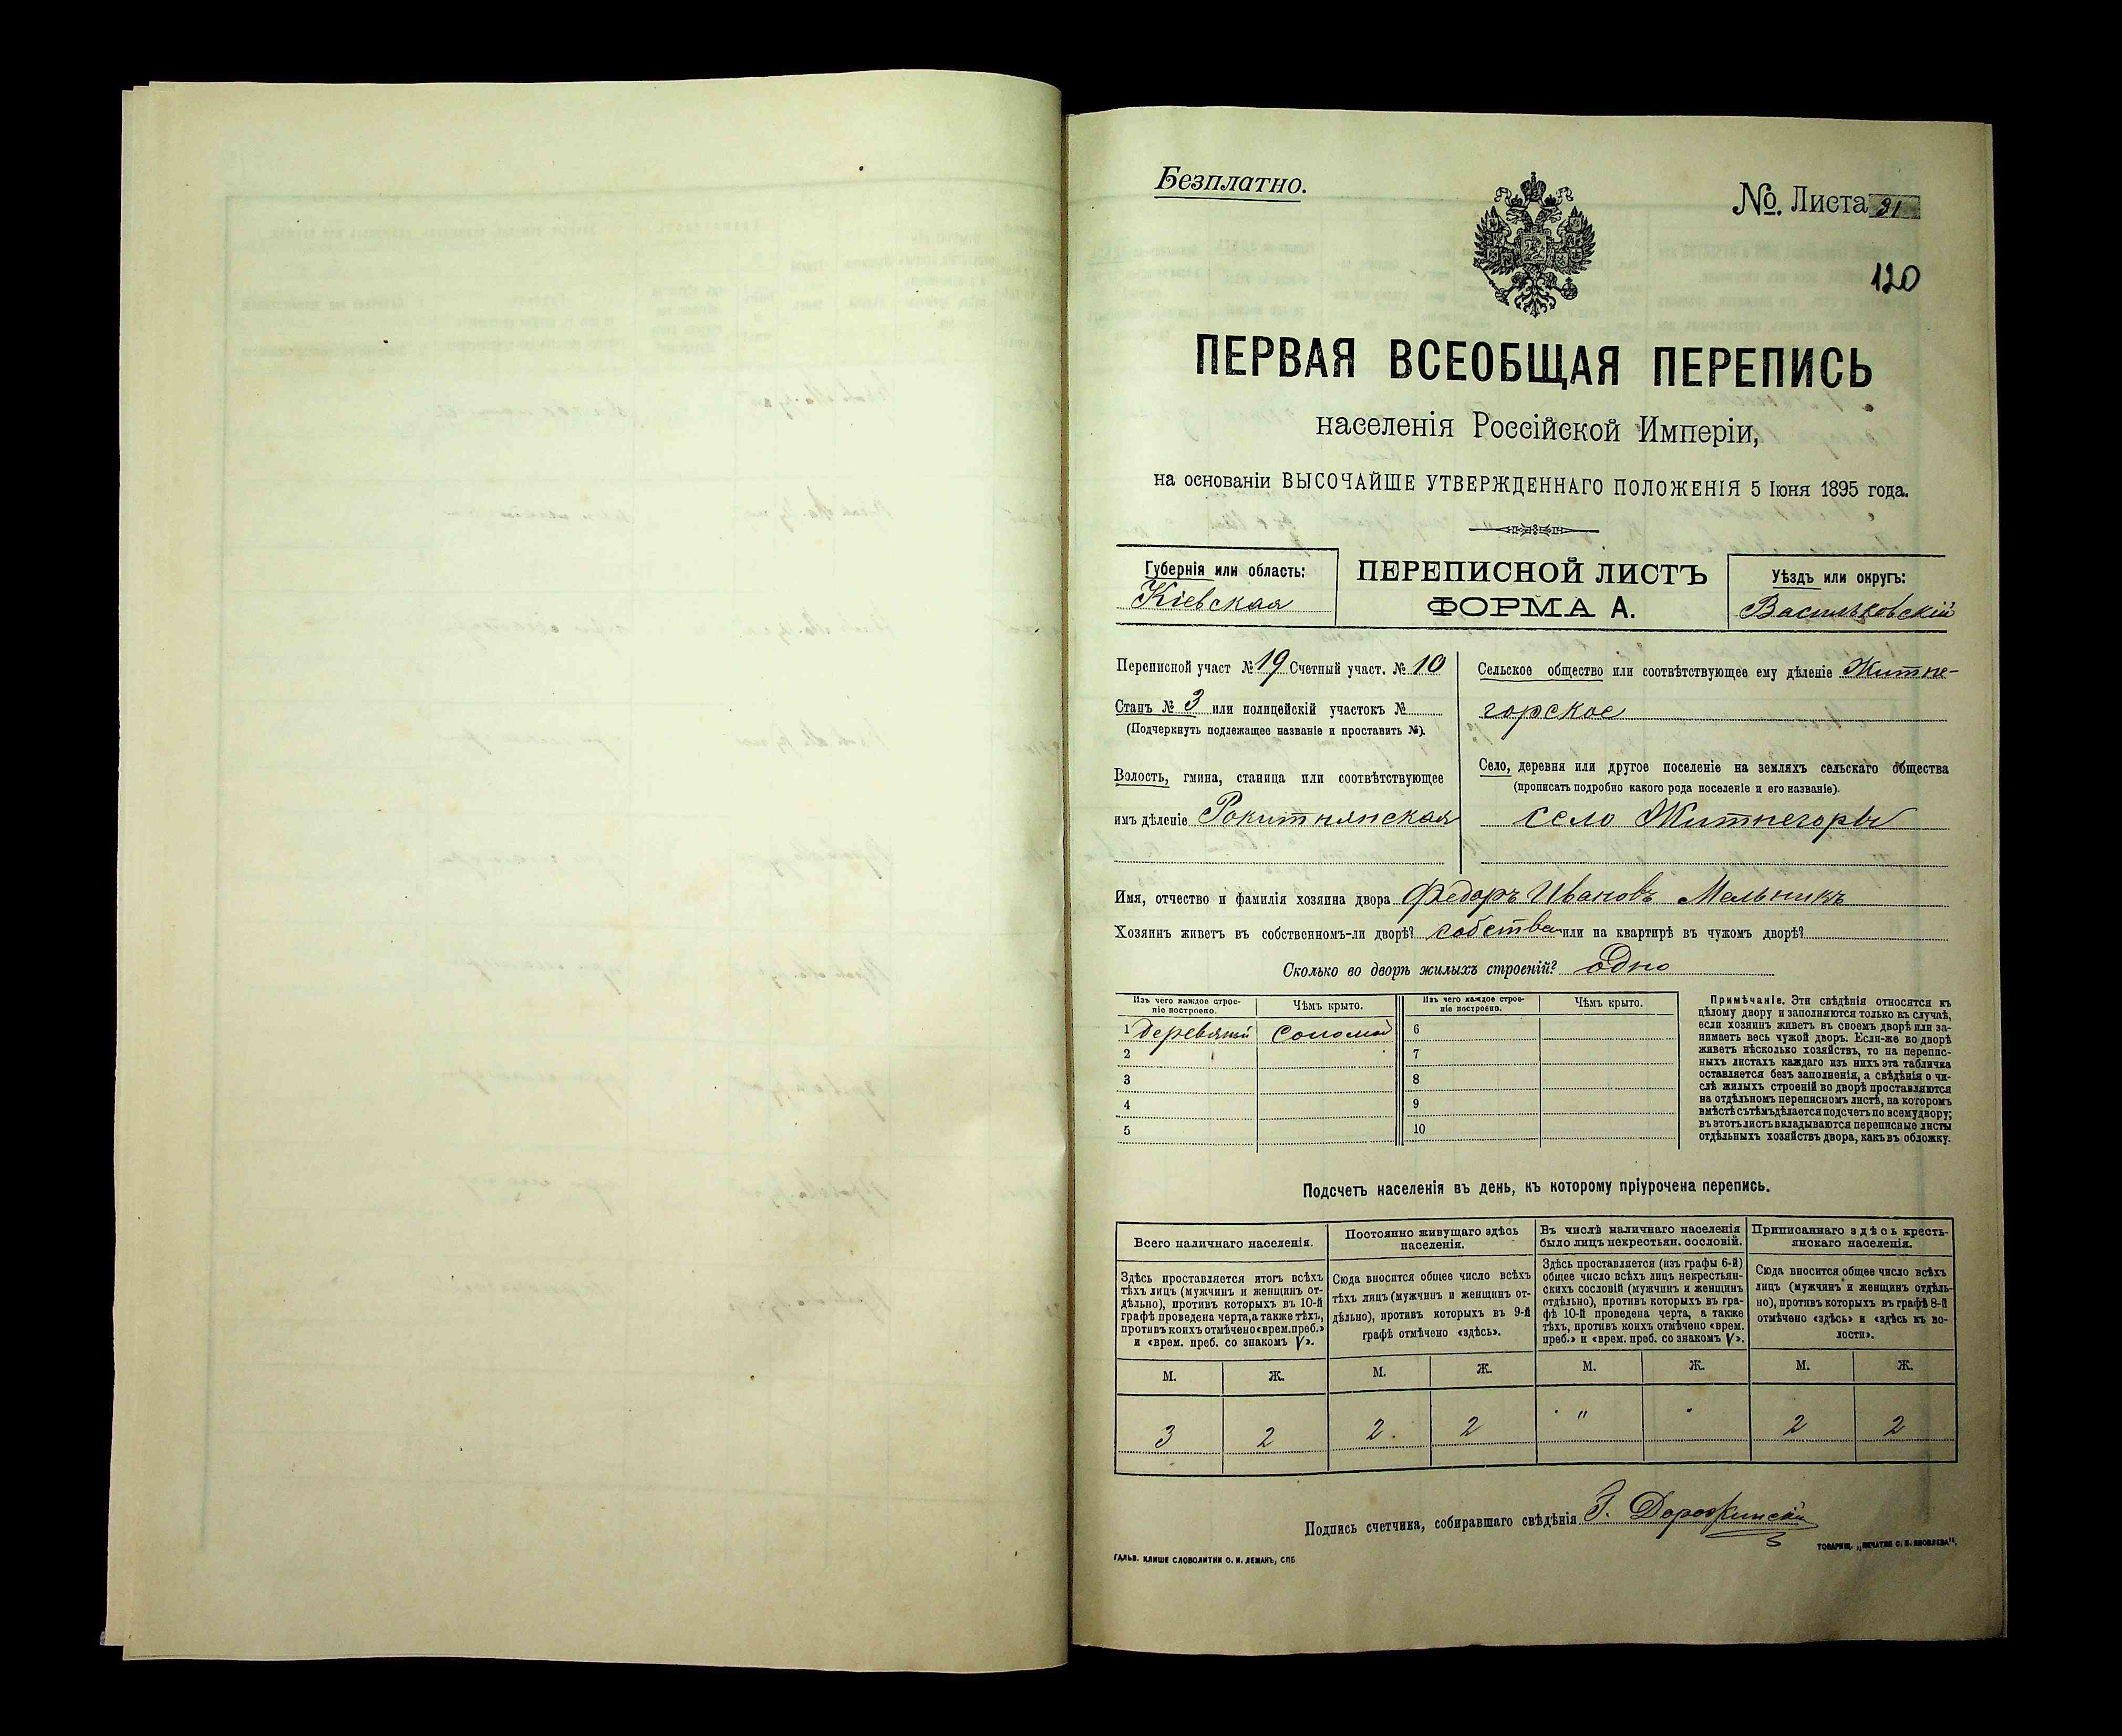 Безплатно.
№. Листа 31
120
ПЕРВАЯ ВСЕОБЩАЯ ПЕРЕПИСЬ
населенія Россійской Имперіи,
на основаніи ВЫСОЧАЙШЕ УТВЕРЖДЕННАГО ПОЛОЖЕНІЯ 5 Іюня 1895 года.
Губернія или область:
Кіевская
ПЕРЕПИСНОЙ ЛИСТЪ
ФОРМА А.
Уѣздъ или округъ:
Васильковскій
Переписной участ № 19 Счетный участ. № 10
Станъ № 3 или полицейскій участокъ №
(Подчеркнуть подлежащее названіе и проставить №).
Волость, гмина, станица или соотвѣтствующее
имъ дѣленіе Рокитнянская
Сельское общество или соотвѣтствующее ему дѣленіе Житне-
горское
Село, деревня или другое поселеніе на земляхъ сельскаго общества
(прописать подробно какого рода поселеніе и его названіе).
село Житнегоры
Имя, отчество и фамилія хозяина двора Федоръ Ивановъ Мельникъ
Хозяинъ живетъ въ собственномъ-ли дворѣ? собствен или на квартирѣ въ чужомъ дворѣ?
Сколько во дворѣ жилыхъ строеній? одно
Изъ чего каждое строе-
ніе построено.
Чѣмъ крыто.
Изъ чего каждое строе-
ніе построено.
Чѣмъ крыто.
1 деревяный соломой 6
2 7
3 8
4 9
5 10
Примѣчаніе. Эти свѣдѣнія относятся къ
цѣлому двору и заполняются только въ случаѣ,
если хозяинъ живетъ въ своемъ дворѣ или за-
нимаетъ весь чужой дворъ. Если-же во дворѣ
живетъ нѣсколько хозяйствъ, то на перепис-
ныхъ листахъ каждаго изъ нихъ эта табличка
оставляется безъ заполненія, а свѣдѣнія о чи-
слѣ жилыхъ строеній во дворѣ проставляются
на отдѣльномъ переписномъ листѣ, на которомъ
вмѣстѣ съ тѣмъ дѣлается подсчетъ по всему двору;
въ этотъ листъ вкладываются переписные листы
отдѣльныхъ хозяйствъ двора, какъ въ обложку.
Подсчетъ населенія въ день, къ которому пріурочена перепись.
Всего наличнаго населенія.
Здѣсь проставляется итогъ всѣхъ
тѣхъ лицъ (мужчинъ и женщинъ от-
дѣльно), противъ которыхъ въ 10-й
графѣ проведена черта, а также тѣхъ,
противъ коихъ отмѣчено «врем. преб.»
и «врем. преб. со знакомъ V».
Постоянно живущаго здѣсь
населенія.
Сюда вносится общее число всѣхъ
тѣхъ лицъ (мужчинъ и женщинъ от-
дѣльно), противъ которыхъ въ 9-й
графѣ отмѣчено «здѣсь».
Въ числѣ наличнаго населенія
было лицъ некрестьян. сословій.
Здѣсь проставляется (изъ графы 6-й)
общее число всѣхъ лицъ некрестьян-
скихъ сословій (мужчинъ и женщинъ
отдѣльно), противъ которыхъ въ гра-
фѣ 10-й проведена черта, а также
тѣхъ, противъ коихъ отмѣчено «врем.
преб.» и «врем. преб. со знакомъ V».
Приписаннаго здѣсь кресть-
янскаго населенія.
Сюда вносится общее число всѣхъ
лицъ (мужчинъ и женщинъ отдѣль-
но), противъ которыхъ въ графѣ 8-й
отмѣчено «здѣсь» и «здѣсь къ во-
лости».
М. Ж. М. Ж. М. Ж. М. Ж.
3 2 2. 2 " 2 2
Подпись счетчика, собиравшаго свѣдѣнія
ГАЛЬВ. КЛИШЕ СЛОВОЛИТНИ О. И. ЛЕМАНЪ, СПБ
ТОВАРИЩ. „ПЕЧАТНЯ С. П. ЯКОВЛЕВА".